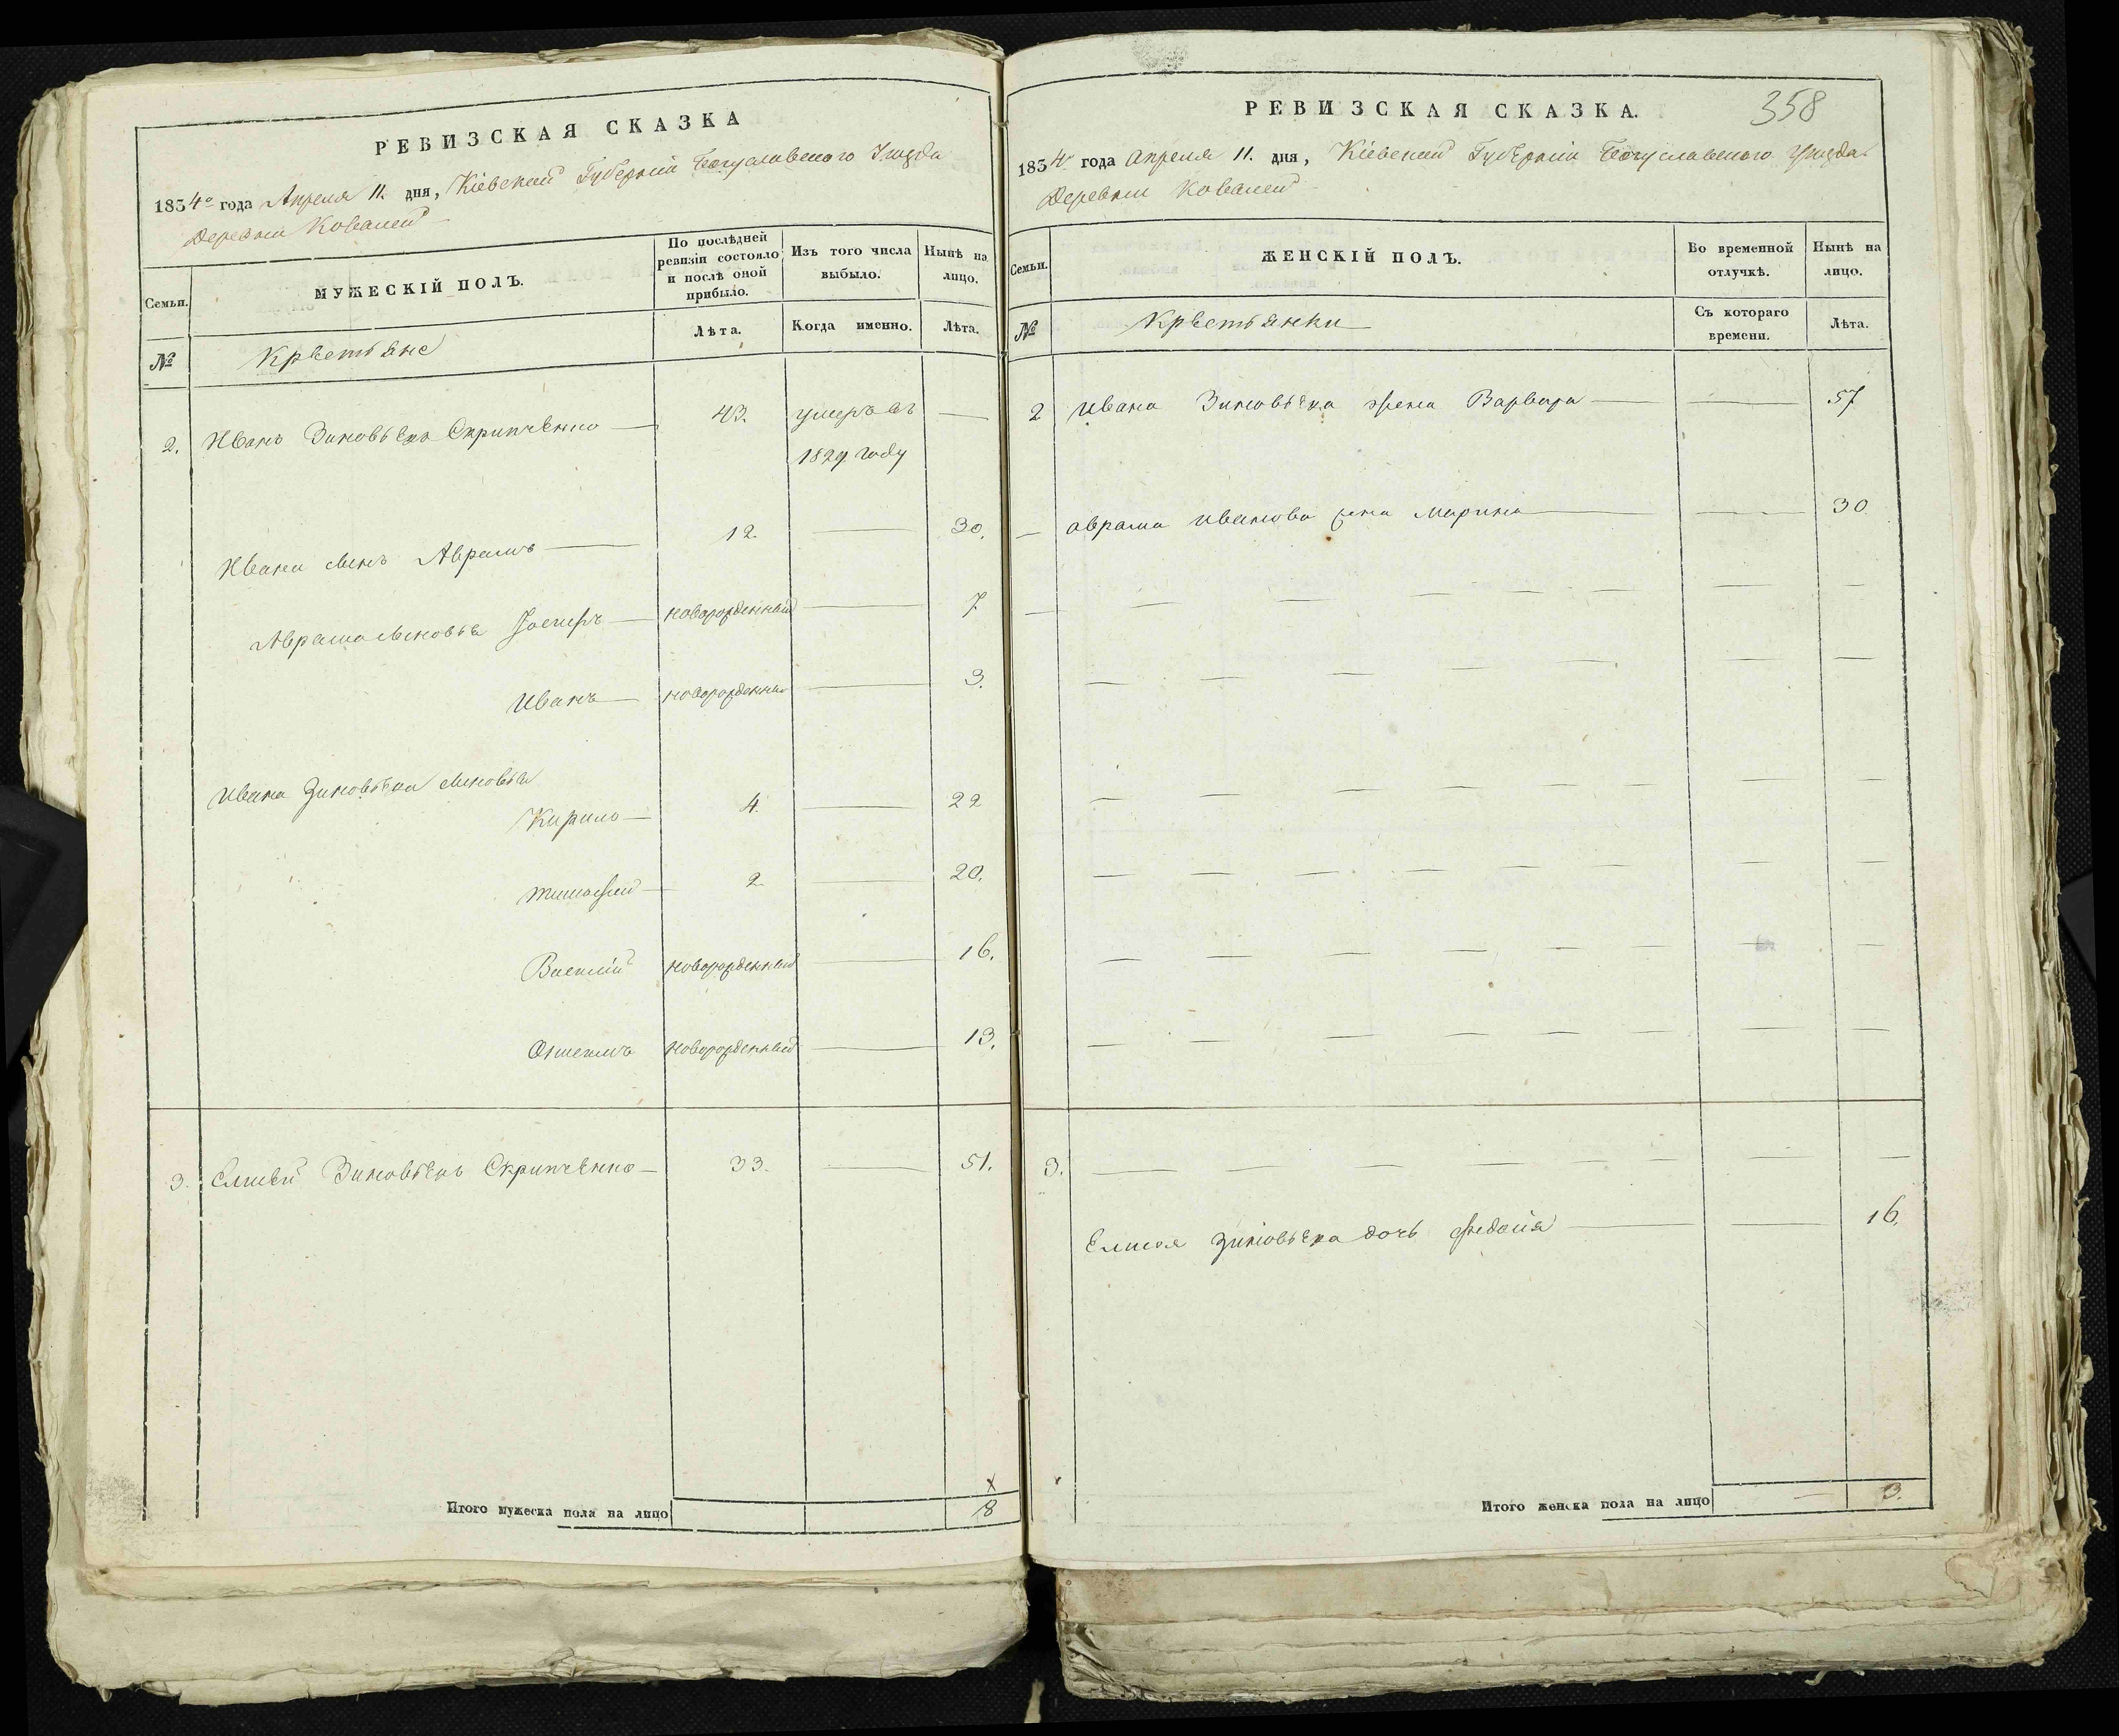 РЕВИЗСКАЯ СКАЗКА
1834го года Апреля 11. дня, Кіевской Губерніи Богуславского Уезда
Деревни Ковалей
Семьи.
МУЖЕСКІЙ ПОЛЪ.
По послѣдней ревизіи состояло и послѣ оной прибыло.
Изъ того числа выбыло.
Нынѣ на лицо.
№
Крестьяне
Лѣта.
Когда именно.
Лѣта.
2. Иванъ Зиновьевъ Скрипченко — 43. умеръ въ —
1829 году
Ивана сынъ Аврамъ — 12. — 30.
Аврама сыновья Іосифъ — новорожденный — 7
Иванъ — новорожденный — 3.
Ивана Зиновьева сыновья
Кирило — 4. — 22
Тимофей — 2 — 20.
Василій новорожденный — 16.
новорожденный — 13.
3. Елисей Зиновьевъ Скрипченко — 33. — 51.
Итого мужеска пола на лицо
x
8
РЕВИЗСКАЯ СКАЗКА.
358
1834го года Апреля 11. дня, Кіевской Губерніи Богуславского Уезда
Деревни Ковалей
Семьи.
ЖЕНСКІЙ ПОЛЪ.
Во временной отлучкѣ.
Нынѣ на лицо.
№
Крестьянки
Съ котораго времени.
Лѣта.
2 Ивана Зиновьева жена Варвара — — 57
— Аврама Иванова жена Марина — — 30
3.
Елисея Зиновьева дочь — — 16.
Итого женска пола на лицо — 3.